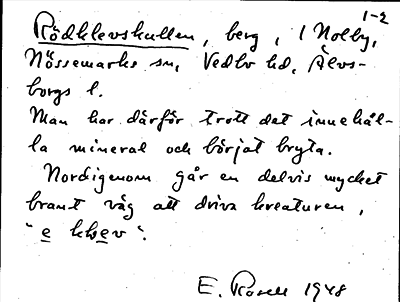 1-2
Rödklevskullen, berg, i Nolby,
Nössemarks sn, Vedbo hd, Älvs-
borgs l.
Man har därför trott det innehål-
la mineral och börjat bryta.
Nordigenom går en delvis mycket
brant väg att driva kreaturen,
"e klev".
E. Rosell 1948